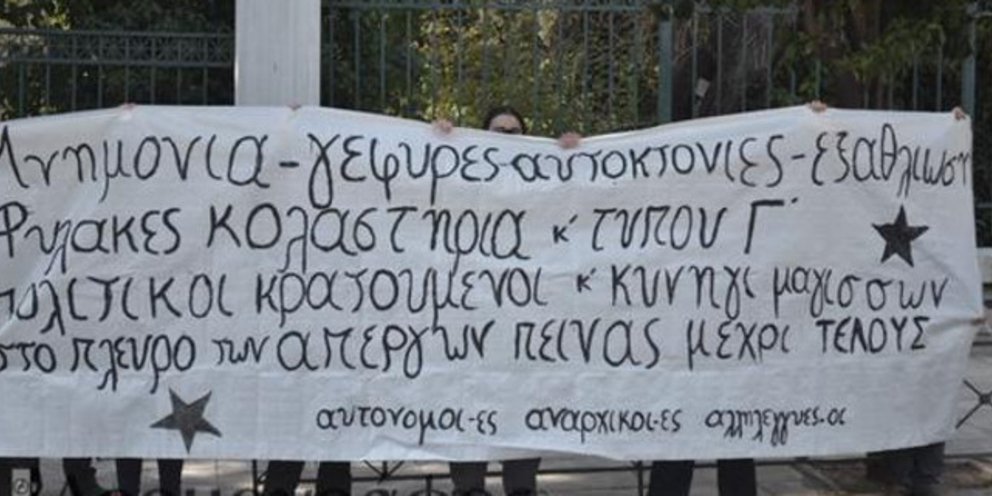 Μνημονια-γεφυρες-αυτοκτονιες-εξαθλιωση
Φυλακες κολαστηρια κ' τυπου Γ'
πολιτικοι κρατουμενοι κ' κυνηγι μαγισσων
στο πλευρο των απεργων πεινας μεχρι ΤΕΛΟΥΣ
αυτονομοι-ες αναρχικοι-ες αλληλεγγυες-οι